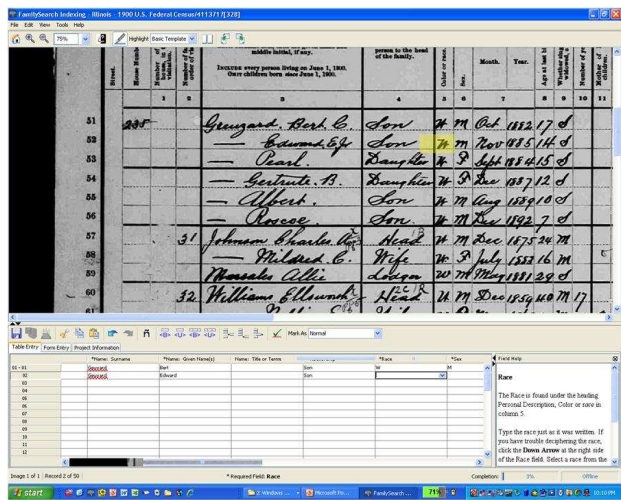 FamilySearch Indexing - Illinois - 1900 U.S. Federal Census/4113717[328]
File Edit View Tools Help
75% Highlight Basic Template
middle initial, if any.
person to the head
of the family.
INCLUDE every person living on June 1, 1900.
OMIT children born since June 1, 1900.
Street.
House Number
Color or race.
Sex.
Month. Year.
Mother of
children.
1 2 3 4 5 6 7 8 9 10 11
51 Bert C. Son W M Oct 1882 17 S
52 — Edward Son W M Nov 1885 14 S
53 — Pearl. Daughter W F Sept 1884 15 S
54 — Gertrute. B. Daughter W F Dec 1887 12 S
55 — Albert. Son W M Aug 1889 10 S
56 — Roscoe Son. W M Dec 1892 7 S
57 31 Johnson Charles Head W M Dec 1875 24 M
58 — Mildred. C. Wife W F July 1883 16 M
59 Allie Lodger W M May 1881 29 S
60 32 Williams Ellsworth Head W M Dec 1859 40 M 17
Mark As Normal
Table Entry Form Entry Project Information
*Name: Surname *Name: Given Name(s) Name: Title or Terms *Race *Sex
01 - 01 Bert Son W M
02 Edward Son
03
04
05
06
07
08
09
10
11
12
Field Help
Race
The Race is found under the heading
Personal Description, Color or race in
column 5.
Type the race just as it was written. If
you have trouble deciphering the race,
click the Down Arrow at the right side
of the Race field. Select a race from the
Image 1 of 1 Record 2 of 50 * Required Field: Race Completion: 3% Offline
start 2 Windows ... Microsoft Po... FamilySearch ... 71° 10:10 PM